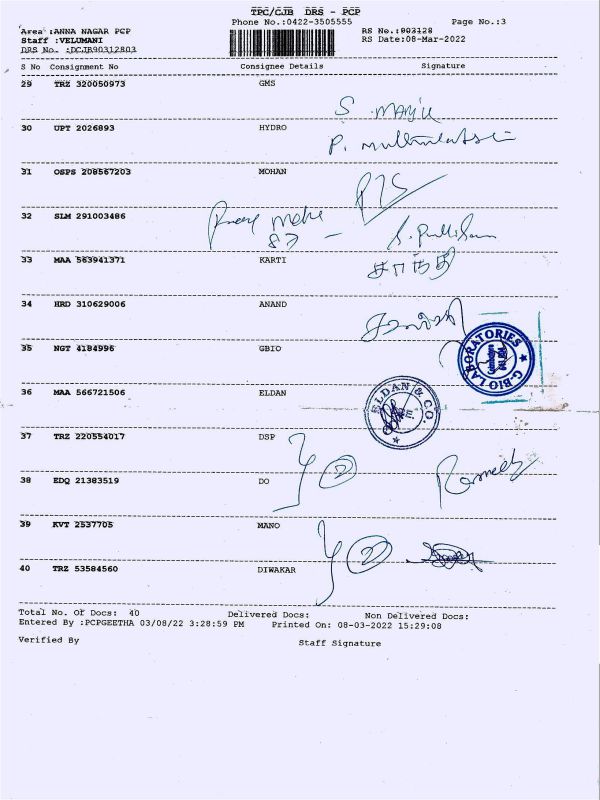 TPC/CJB DRS - PCP
Phone No.:0422-3505555 Page No.:3
Area :ANNA NAGAR PCP RS No.:903128
Staff :VELUMANI RS Date:08-Mar-2022
DRS No. :DCJB90312803
S No Consignment No Consignee Details Signature
29 TRZ 320050973 GMS
S. MANJU
30 UPT 2026893 HYDRO
P.
31 OSPS 208567203 MOHAN
32 SLM 291003486
87
33 MAA 563941371 KARTI
34 HRD 310629006 ANAND
35 NGT 4184996 GBIO
G-BIO LABORATORIES
36 MAA 566721506 ELDAN
ELDAN & CO.
37 TRZ 220554017 DSP
2
38 EDQ 21383519 DO
39 KVT 2537705 MANO
2
40 TRZ 53584560 DIWAKAR
Total No. Of Docs: 40 Delivered Docs: Non Delivered Docs:
Entered By :PCPGEETHA 03/08/22 3:28:59 PM Printed On: 08-03-2022 15:29:08
Verified By Staff Signature